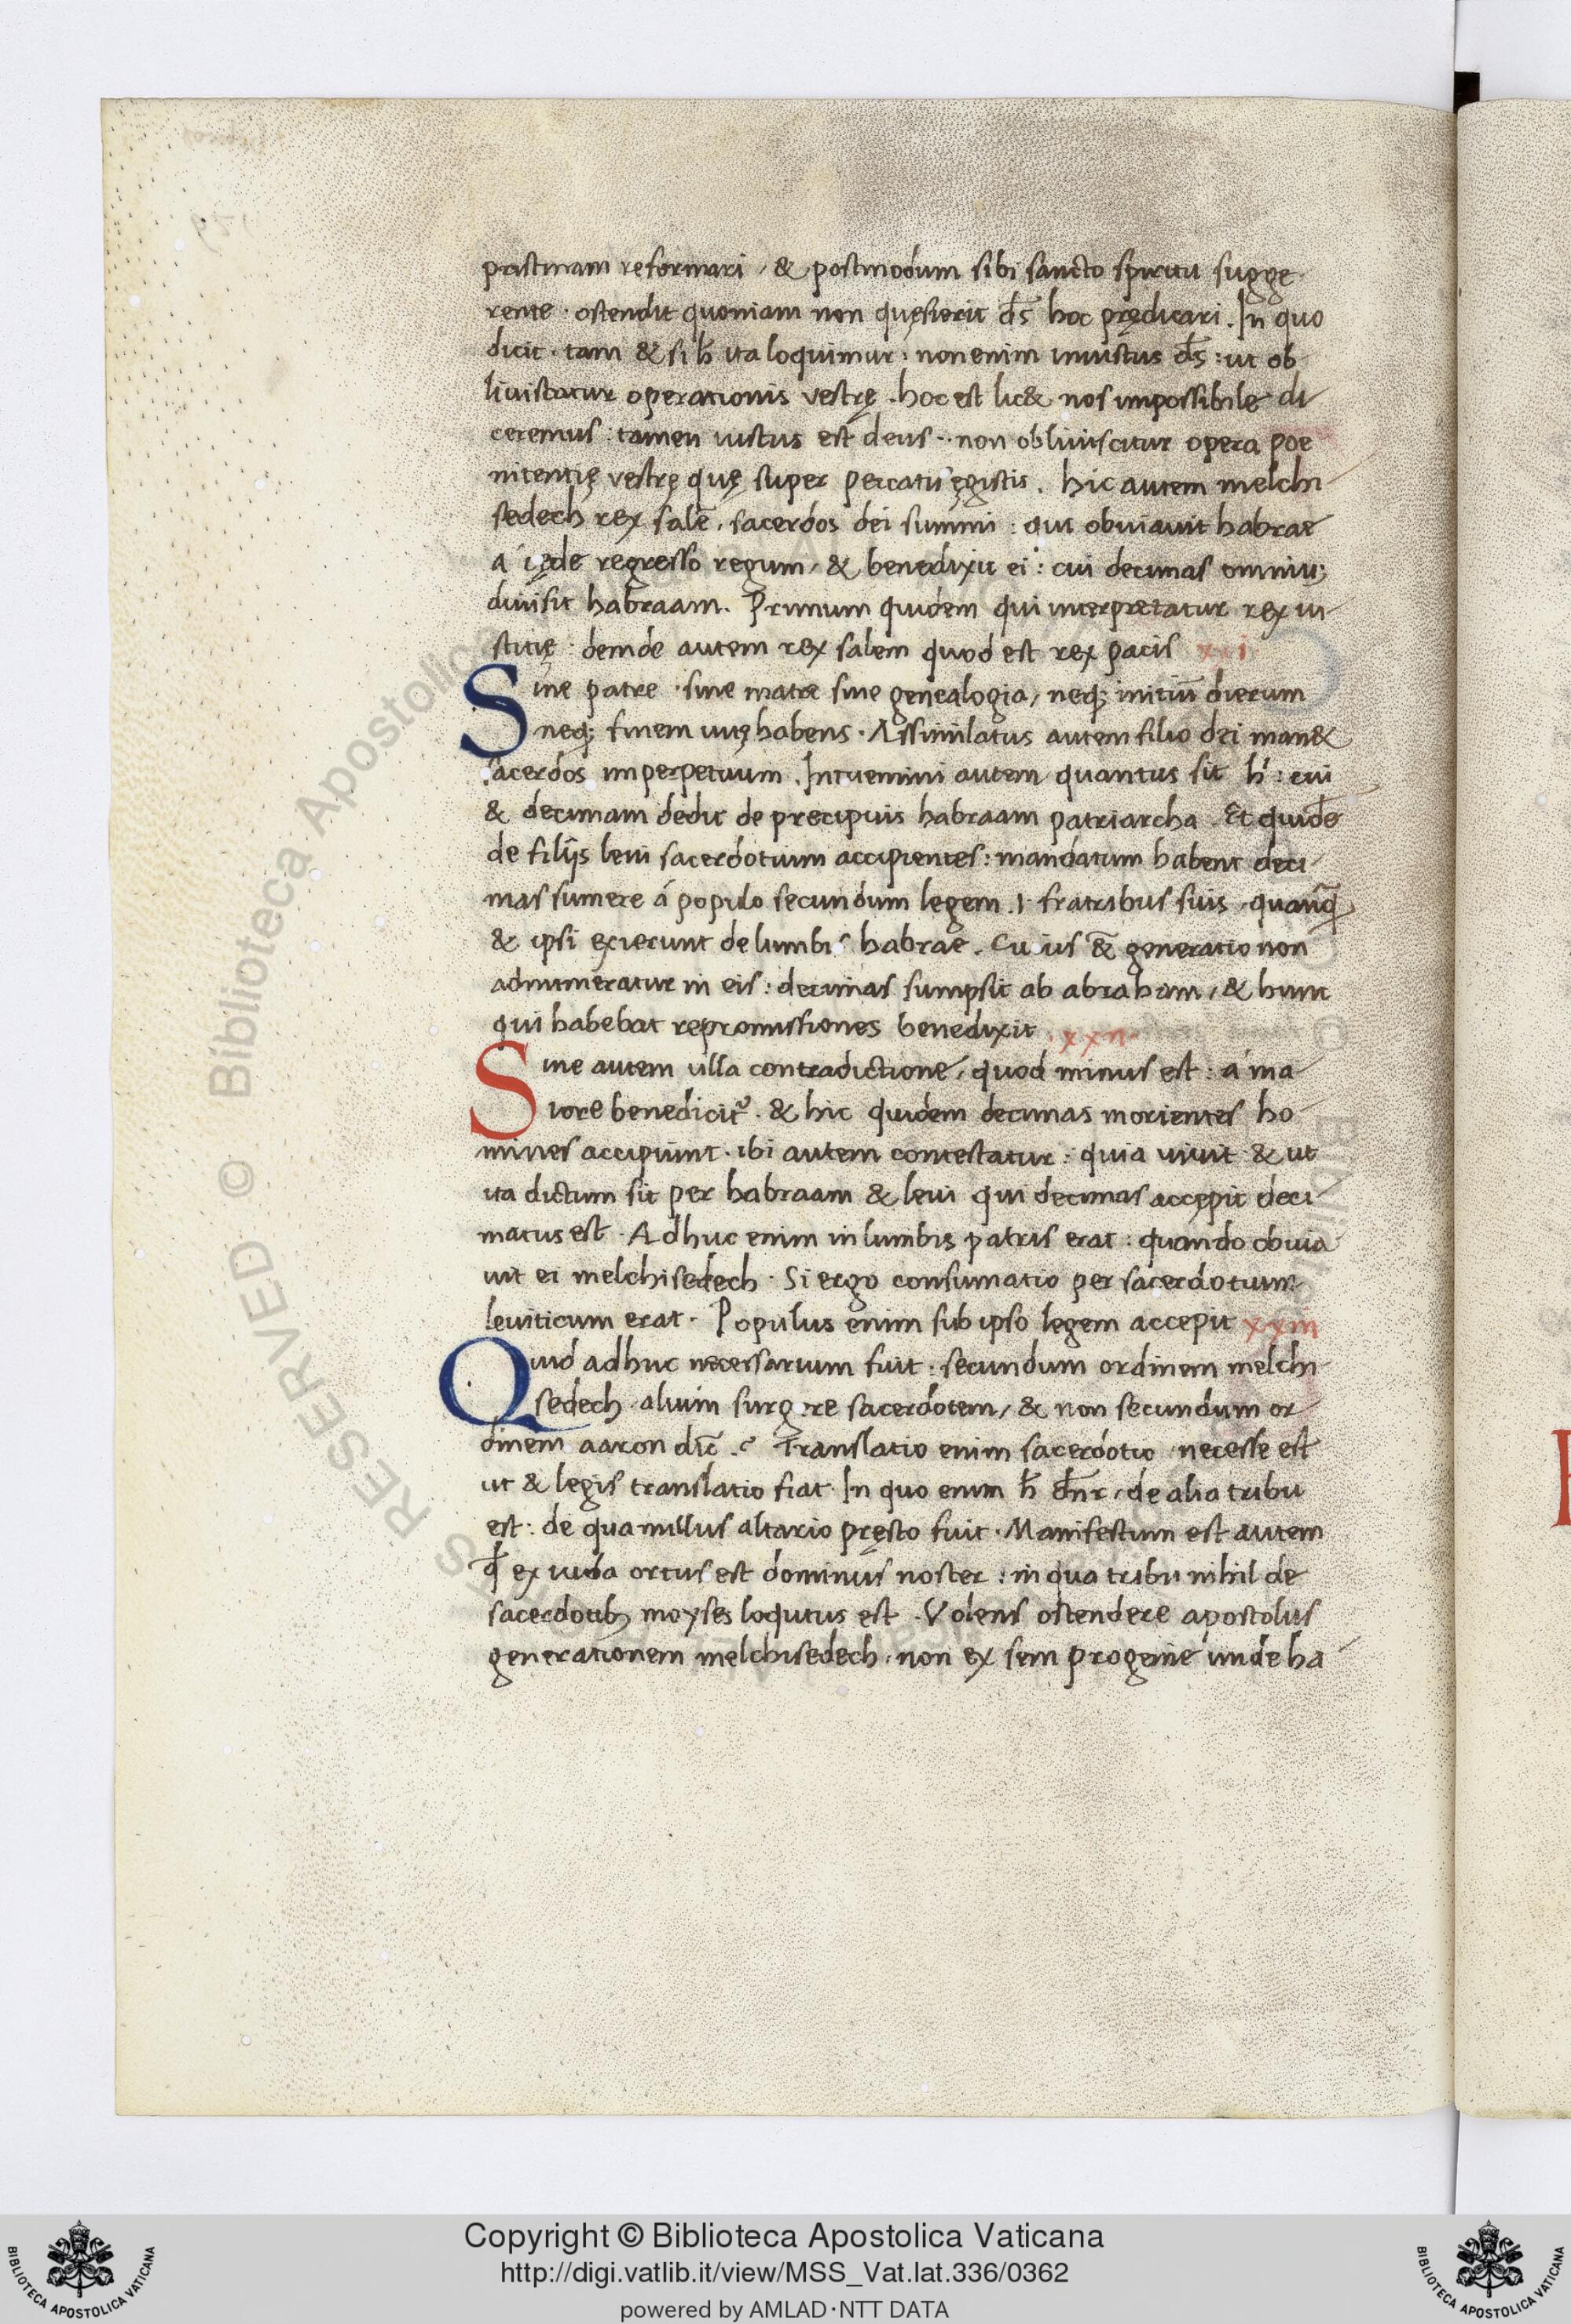 pristinam reformari, & postmodum sibi sancto spiritu sugge
rente · ostendit quoniam non quęsierit d̅s hoc prędicari. In quo
dicit · tam & si h̅ ita loquimur : non enim iniustus d̅s : ut ob
liuiscatur operationis vestrę . hoc est lic& nos impossibile di
ceremus : tamen iustus est deus · non obliuiscitur opera poe
nitentię vestrę quę super peccatis ęgistis . hic autem melchi
sedech rex sale̅ . sacerdos dei summi : qui obuiauit habrae
a cęde regresso regum, & benedixit ei : cui decimas omniu̅
diuisit habraam. Primum quidem qui interpretatur rex iu
stitię : deinde autem rex salem quod est rex pacis xxi
Sine patre · sine matre sine genealogia, neq; initiu̅ dierum
neq; finem uitę habens · Assimilatus autem filio dei man&
sacerdos imperpetuum . Intuemini autem quantus sit h̅ : cui
& decimam dedit de precipuis habraam patriarcha . Et quide̅
de filijs leui sacerdotium accipientes : mandatum habent deci
mas sumere á populo secundum legem .i. fratribus suis · quanq̅
& ipsi exierunt de lumbis habrae . Cuius & generatio non
adnumeratur in eis : decimas sumpsit ab abraham, & hunc
qui habebat repromissiones benedixit . xxii
Sine autem ulla contradictione, quod minus est : á ma
iore benedicit᷑ . & hic quidem decimas morientes ho
mines accipiunt · ibi autem contestatur : quia uiuit & ut
ita dictum sit per habraam & leui qui decimas accepit deci
matus est · Adhuc enim in lumbis patris erat : quando obuia
uit ei melchisedech · Si ergo consumatio per sacerdotium
leuiticum erat · Populus enim sub ipso legem accepit xxiii
Quid adhuc necessarium fuit · secundum ordinem melchi
sedech · alium surgere sacerdotem, & non secundum or
dinem aaron dic̅ . Translatio enim sacerdotio necesse est
ut & legis translatio fiat · In quo enim h̅ d̅nr, de alia tribu
est : de qua nullus altario pręsto fuit · Manifestum est autem
q̅ ex iuda ortus est dominus noster : in qua tribu nihil de
sacerdotib; moyses loqutus est . Volens ostendere apostolus
generationem melchisedech · non ex sem progenie unde ha
Copyright © Biblioteca Apostolica Vaticana
http://digi.vatlib.it/view/MSS_Vat.lat.336/0362
powered by AMLAD·NTT DATA